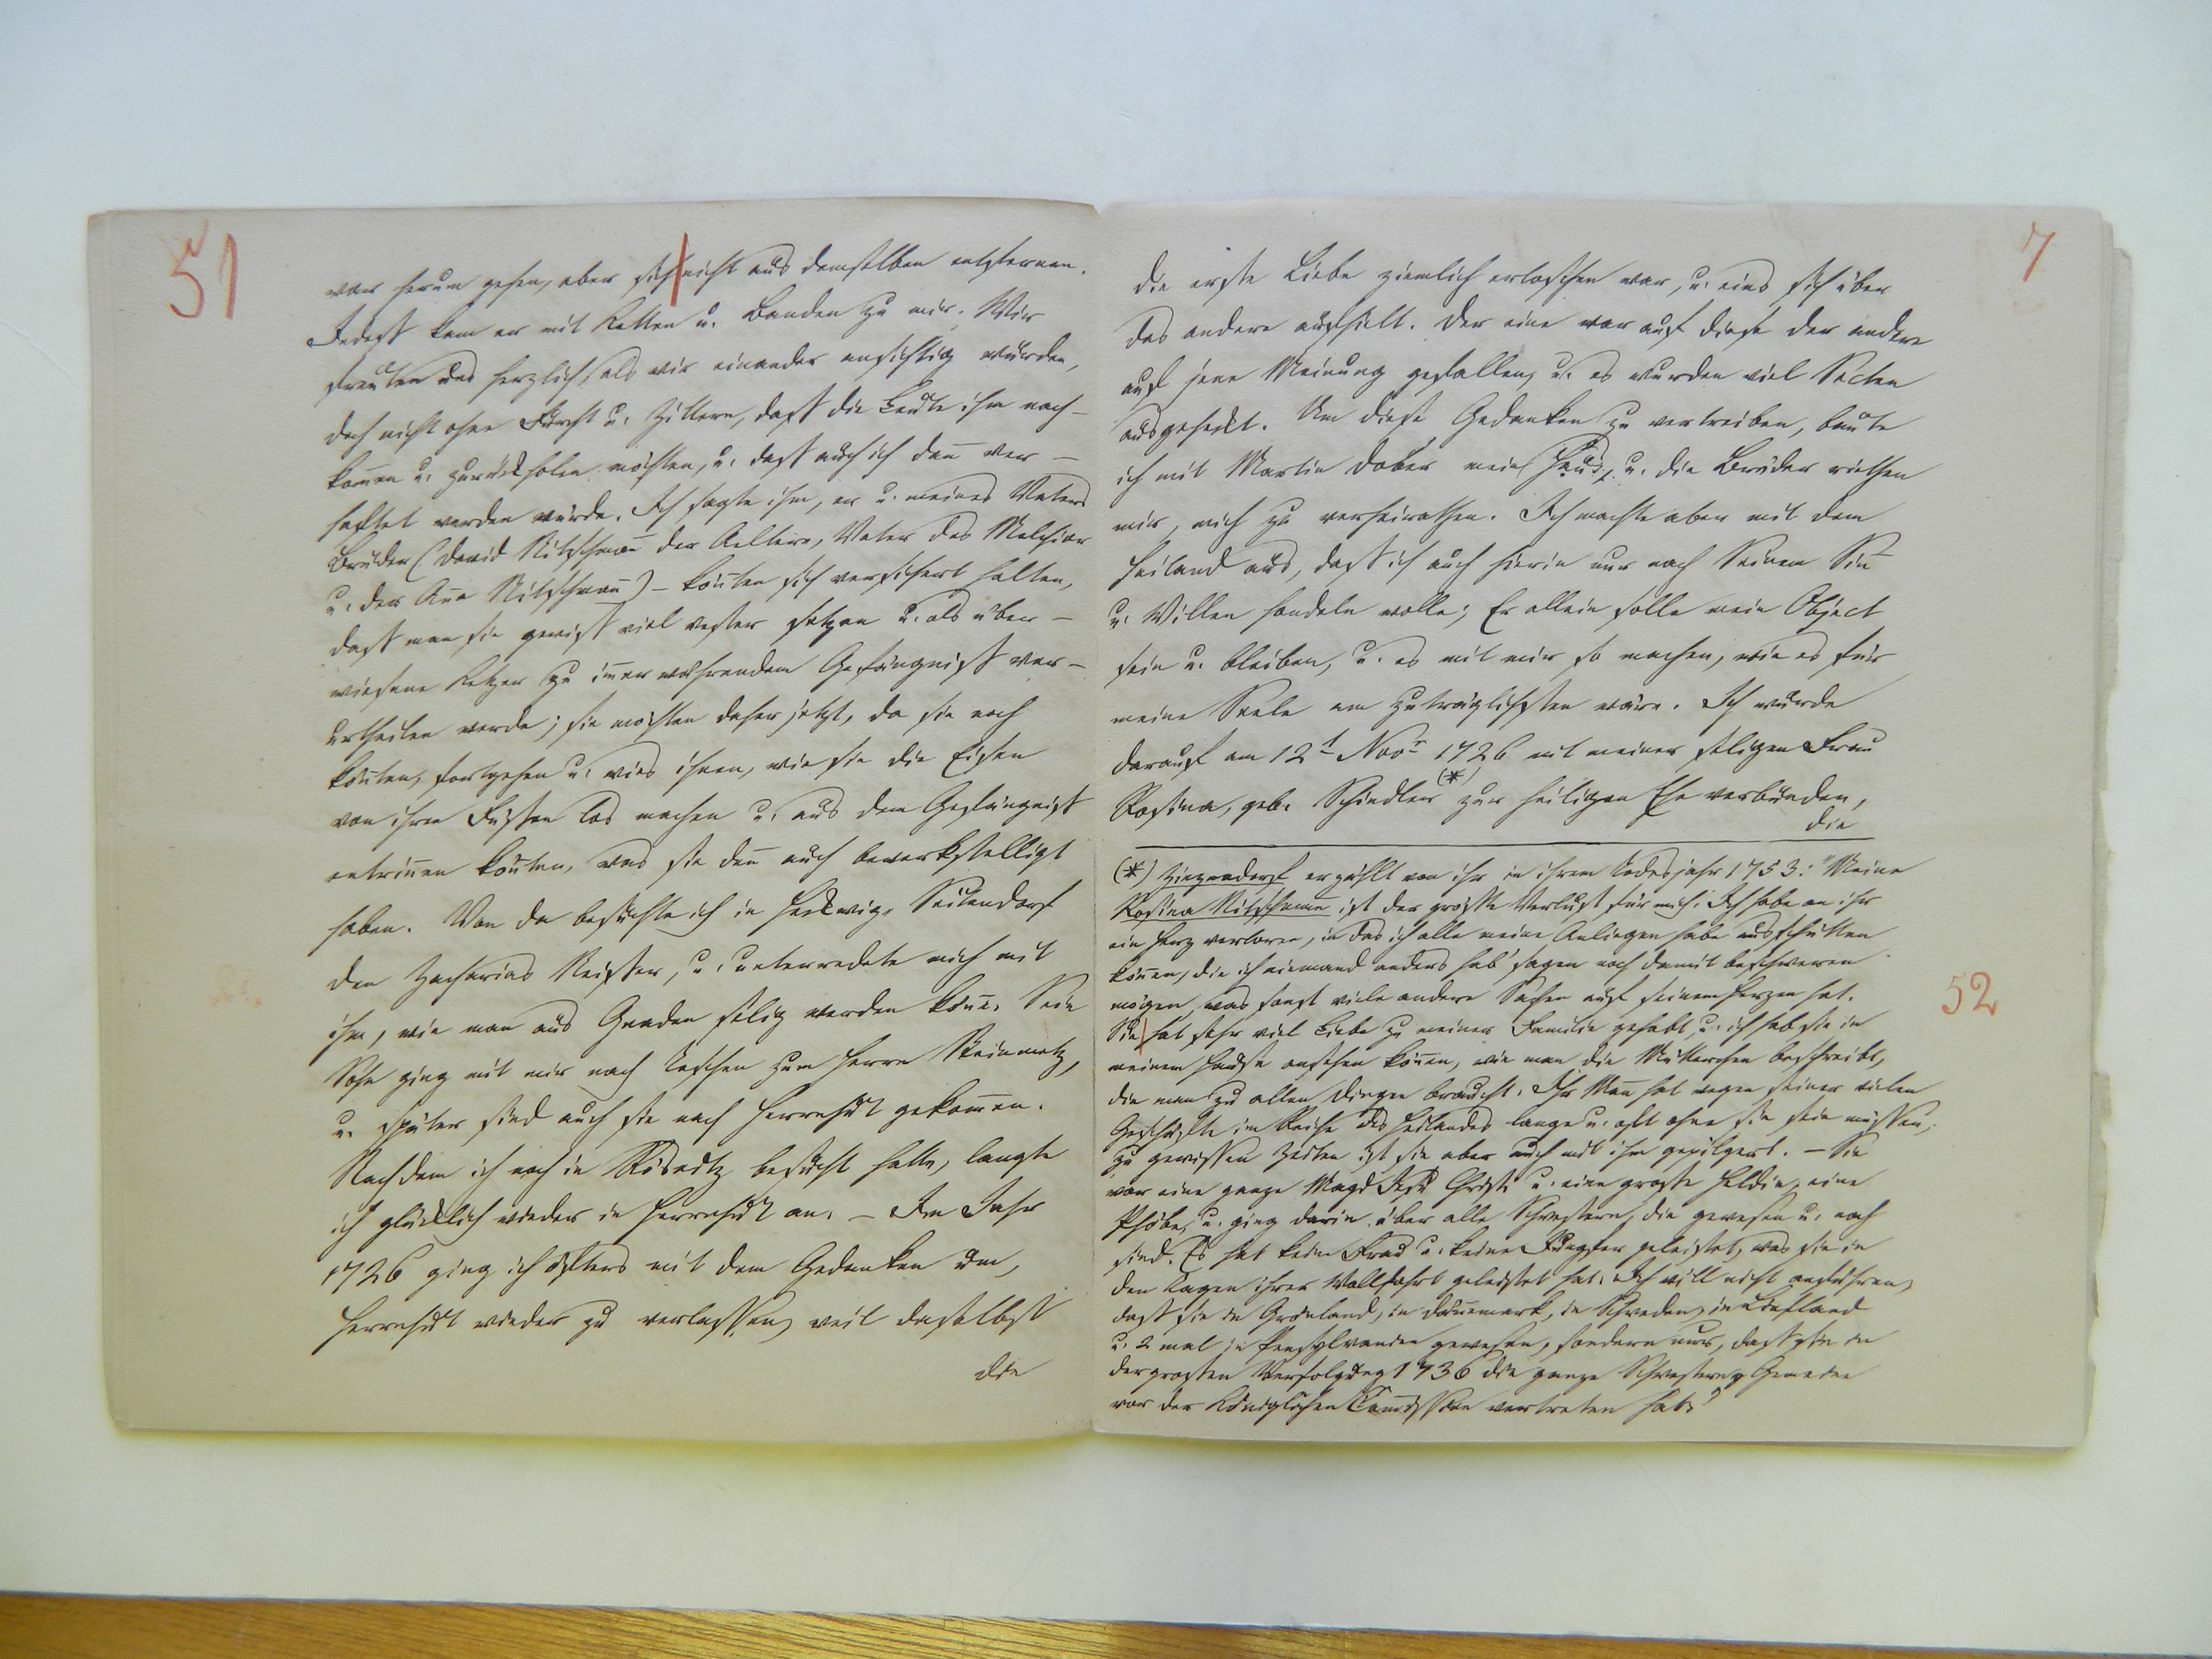 51
war herum gehen, aber sich nicht aus demselben entfernen.
Indeß kam er mit Ketten u. Banden zu mir. Wir
freuten uns herzlich, als wir einander ansichtig wurden,
doch nicht ohne Furcht u. Zittern, daß die Leute ihm nach-
kom̄en u. zurückholen möchten, u. daß auch ich dan̄ ver-
haftet werden würde. Ich sagte ihm, er u. meines Vaters
Bruder (David Nitschman̄ der Aeltere, Vater des Melchior
u. der An̄a Nitschman̄) - kön̄ten sich versichert halten,
daß man sie gewiß viel vester setzen u. als über-
wiesene Ketzer zu im̄erwährendem Gefängniß ver-
urtheilen werde; sie möchten daher jetzt, da sie noch
kön̄ten, fortgehen u. wies ihnen, wie sie die Eisen
von ihren Füßen los machen u. aus dem Gefängniß
entrin̄en kön̄ten, was sie den̄ auch bewerkstelligt
haben. Von da besuchte ich in Seitendorf
den Zacharias Neisser, u. unterredete mich mit
ihm, wie man aus Gnaden selig werden kön̄e. Sein
Sohn ging mit mir nach Teschen zum Herrn Steinmetz,
u. später sind auch sie nach Herrnhut gekom̄en.
Nachdem ich noch in besucht hatte, langte
ich glücklich wieder in Herrnhut an. - Im Jahr
1726 ging ich öfters mit dem Gedanken um,
Herrnhut wieder zu verlassen, weil daselbst
die
7
die erste Liebe ziemlich erloschen war, u. eins sich über
das andere aufhielt. Der eine war auf diese der andere
auf jene Meinung gefallen, u. es wurden viel Secten
ausgeheckt. Um diese Gedanken zu vertreiben, baute
ich mit Martin Dober mein Haus, u. die Brüder riethen
mir, mich zu verheirathen. Ich machte aber mit dem
Heiland aus, daß ich auch hierin nur nach Seinem Sin̄
u. Willen handeln wolle; Er allein solle mein Object
sein u. bleiben, u. es mit mir so machen, wie es für
meine Seele am zuträglichsten wäre. Ich wurde
darauf am 12t Novr 1726 mit meiner seligen Frau
Rosina, geb. Schindler (*) zur heiligen Ehe verbunden,
die
(*) Zinzendorf erzählt von ihr in ihrem Todesjahr 1753: "Meine
Rosina Nitschmann ist der größte Verlust für mich. Ich habe an ihr
ein Herz verloren, in das ich alle meine Anliegen habe ausschütten
kön̄en, die ich niemand anders hab' sagen noch damit beschweren
mögen, was sonst viele andere Sachen auf seinem Herzen hat.
Sie hat sehr viel Liebe zu meiner Familie gehabt, u. ich hab sie in
meinem Hause ansehen kön̄en, wie man die Mütterchen beschreibt,
die man zu allen Dingen braucht. Ihr Man̄ hat wegen seiner vielen
Geschäfte im Reiche des Heilandes lange u. oft ohne sie sein müssen,
zu gewissen Zeiten ist sie aber auch mit ihm gepilgert. - Sie
war eine ganze Magd Jesu Christi u. eine große Heldin, eine
Phöbe, u. ging darin über alle Schwestern, die gewesen u. noch
sind. Es hat keine Frau u. keine Jungfer geleistet, was sie in
den Tagen ihrer Wallfahrt geleistet hat. Ich will nicht anführen,
daß sie in Grönland, in Dän̄emark, in Schweden, in Liefland
u. 2 mal in Pensylvanien gewesen, sondern nur, daß sie in
der großen Verfolgung 1736 die ganze Schwestern Gemeine
vor der Königlichen Com̄ission vertreten hat."
52